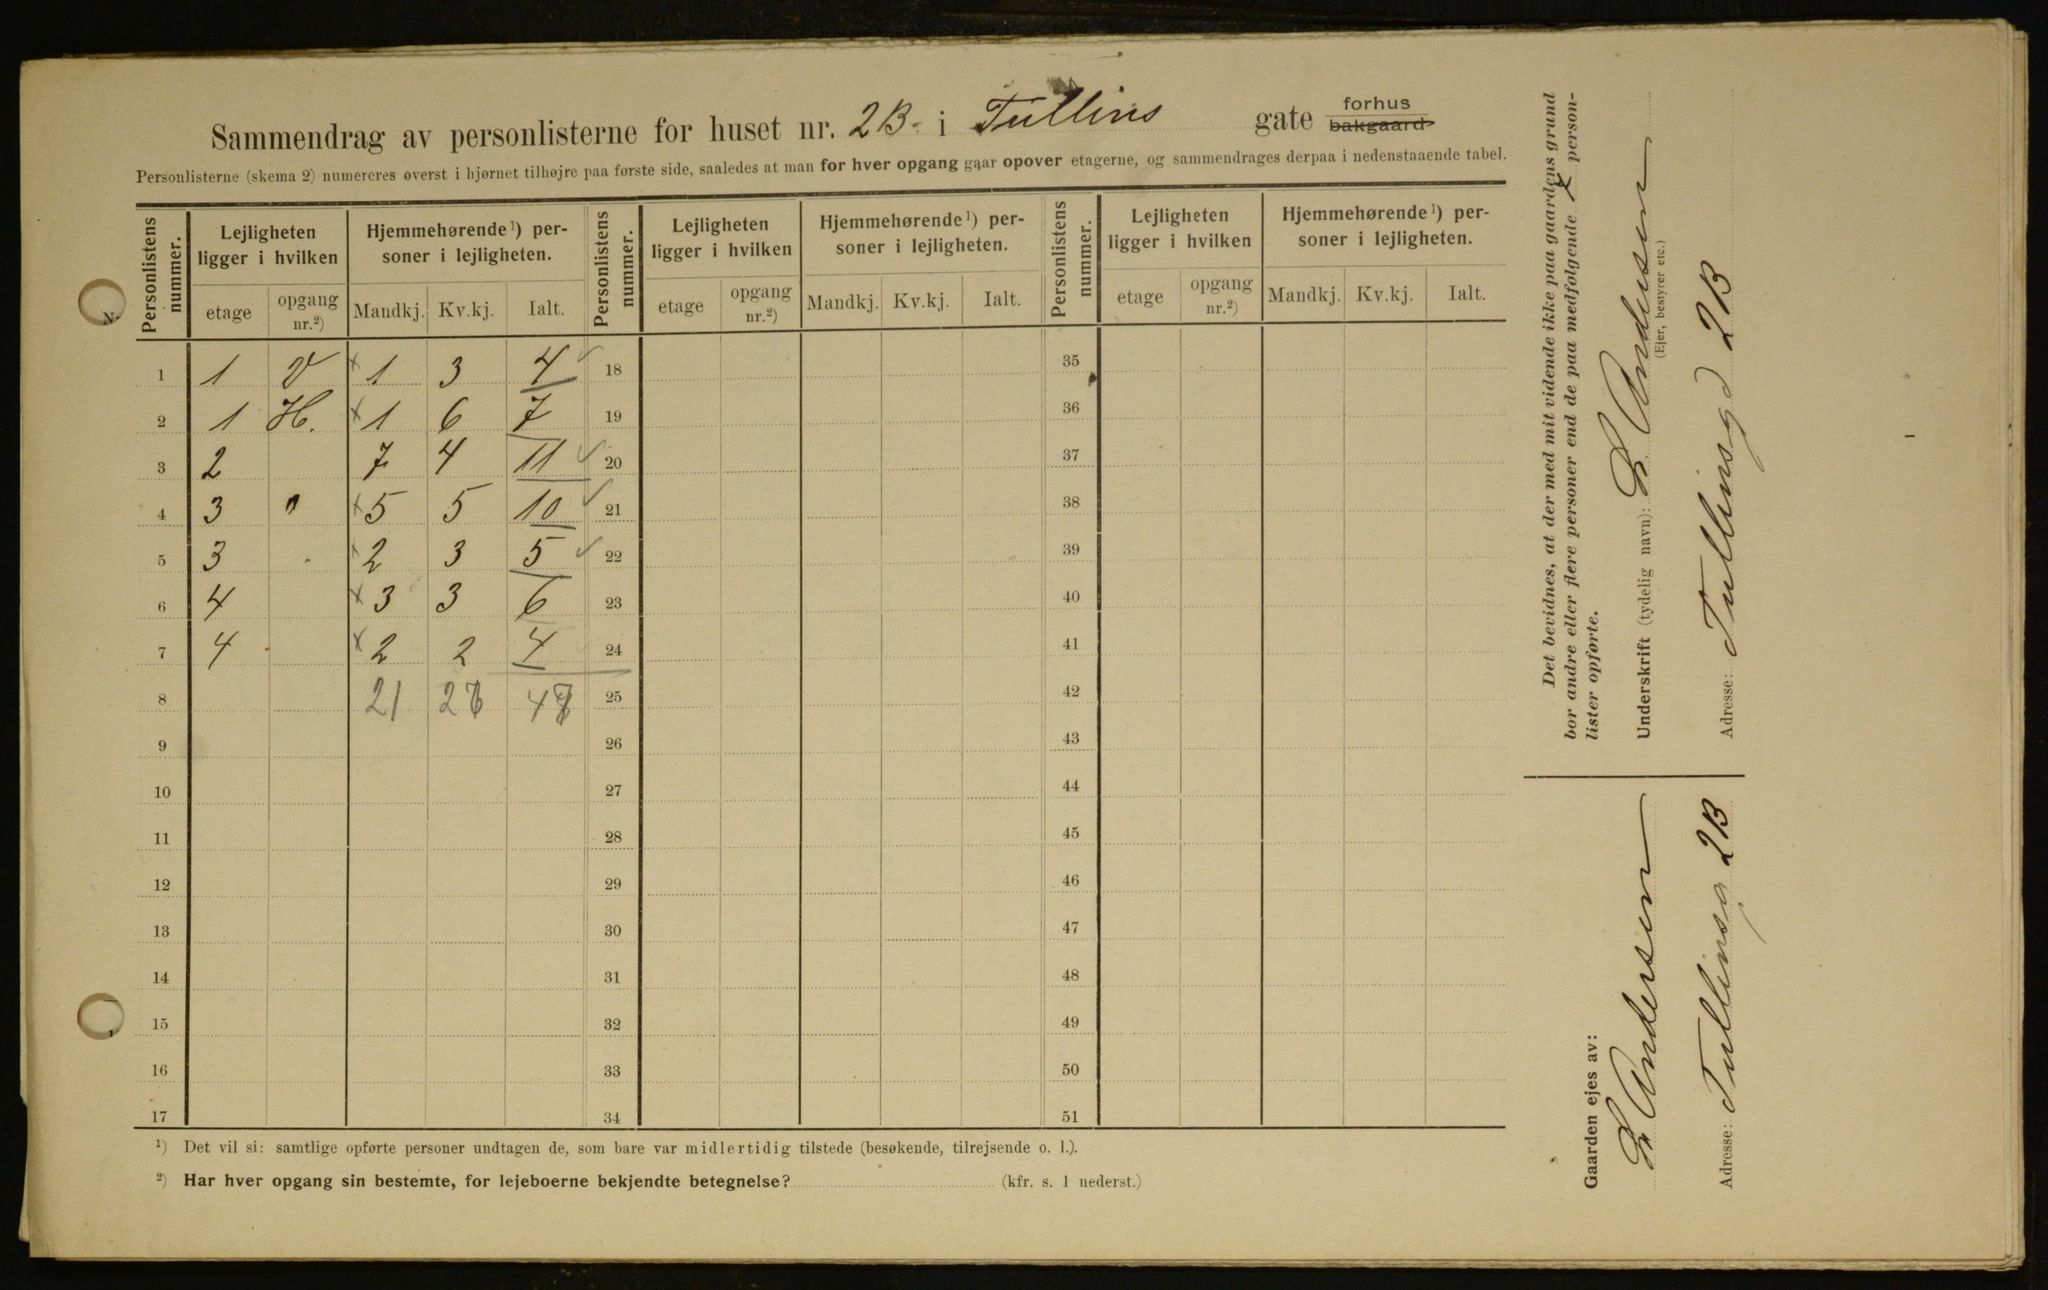 Sammendrag av personlisterne for huset nr. 2B. i Tullins gate forhus bakgaard
Personlisterne (skema 2) numereres øverst i hjørnet tilhøjre paa første side, saaledes at man for hver opgang gaar opover etagerne, og sammendrages derpaa i nedenstaaende tabel.
Personlistens nummer. Lejligheten ligger i hvilken Hjemmehørende¹) personer i lejligheten. Personlistens nummer. Lejligheten ligger i hvilken Hjemmehørende¹) personer i lejligheten. Personlistens nummer. Lejligheten ligger i hvilken Hjemmehørende¹) personer i lejligheten.
etage opgang nr.²) Mandkj. Kv.kj. Ialt. etage opgang nr.²) Mandkj. Kv.kj. Ialt. etage opgang nr.²) Mandkj. Kv.kj. Ialt.
1 1 V × 1 3 4 ✓ 18 35
2 1 H. × 1 6 7 19 36
3 2 7 4 11 ✓ 20 37
4 3 " × 5 5 10 ✓ 21 38
5 3 × 2 3 5 ✓ 22 39
6 4 × 3 3 6 23 40
7 4 × 2 2 4 24 41
8 21 26 47 25 42
9 26 43
10 27 44
11 28 45
12 29 46
13 30 47
14 31 48
15 32 49
16 33 50
17 34 51
¹) Det vil si: samtlige opførte personer undtagen de, som bare var midlertidig tilstede (besøkende, tilrejsende o. l.).
²) Har hver opgang sin bestemte, for lejeboerne bekjendte betegnelse? (kfr. s. 1 nederst.)
Det bevidnes, at der med mit vidende ikke paa gaardens grund
bor andre eller flere personer end de paa medfølgende 7 person-
lister opførte.
Underskrift (tydelig navn): L Andersen
(Ejer, bestyrer etc.)
Adresse: Tullinsgd 2B
Gaarden ejes av:
L Andersen
Adresse: Tullinsg 2B